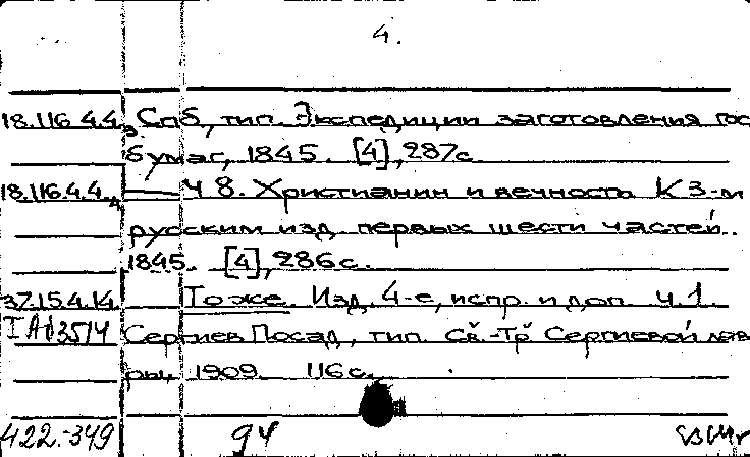 4.
18.116.4.4 Спб, тип. Экспедиции заготовления гос
бумаг, 1845. [4], 287с.
18.116.4.4. — Ч 8. Христианин и вечность К 3-м
русским изд. первых шести частей.
1845. [4], 286с.
37.15.4.14 То же. Изд. 4-е, испр. и доп. Ч.1.
Сергиев Посад, тип. Св.-Тр Сергиевой лав
ры, 1909. 116с.
422.-349 94